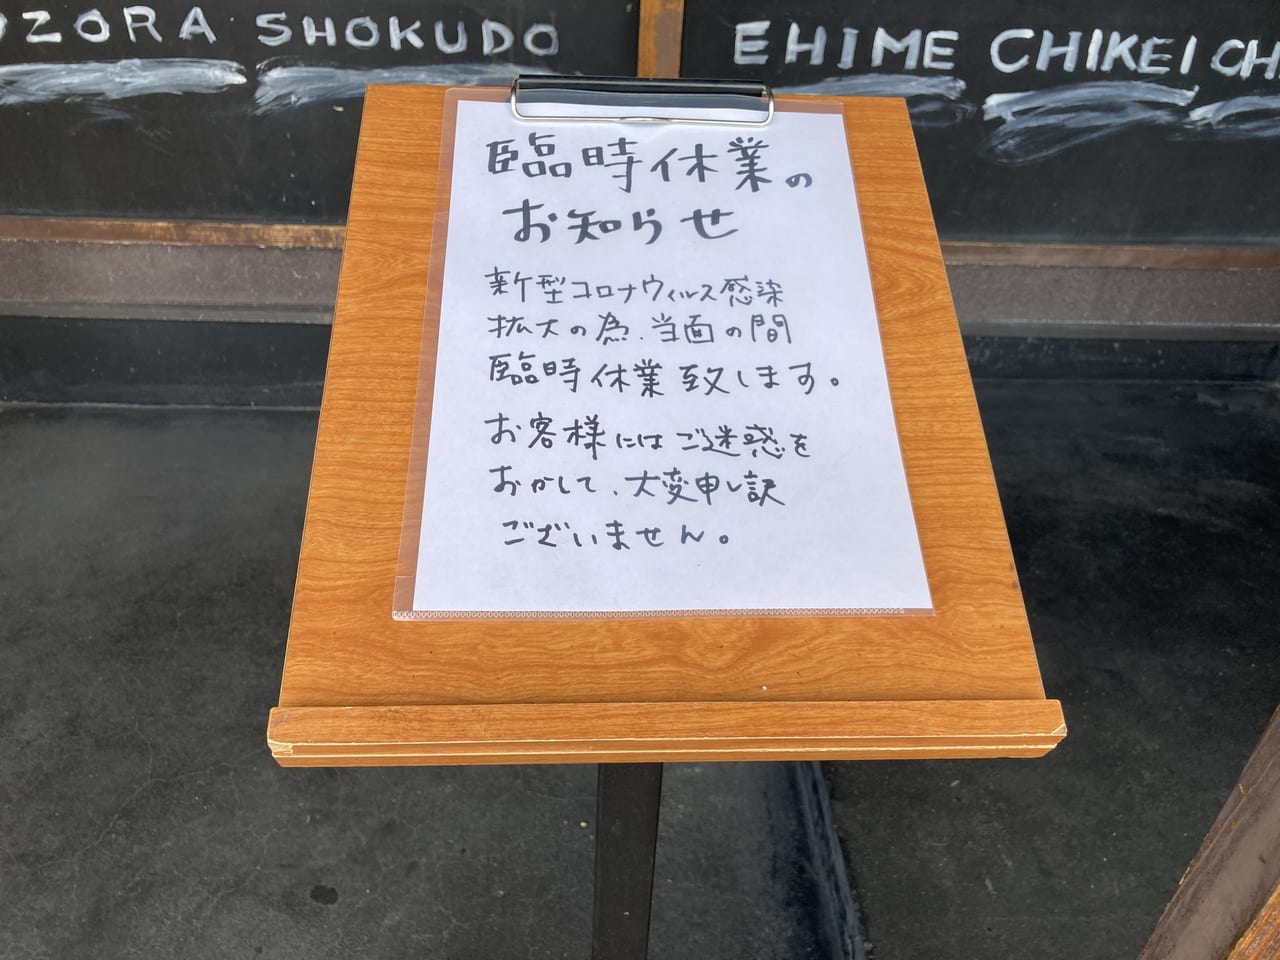 OZORA SHOKUDO
EHIME CHIKEI CH
臨時休業の
お知らせ
新型コロナウィルス感染
拡大の為、当面の間
臨時休業致します。
お客様にはご迷惑を
おかして、大変申し訳
ございません。